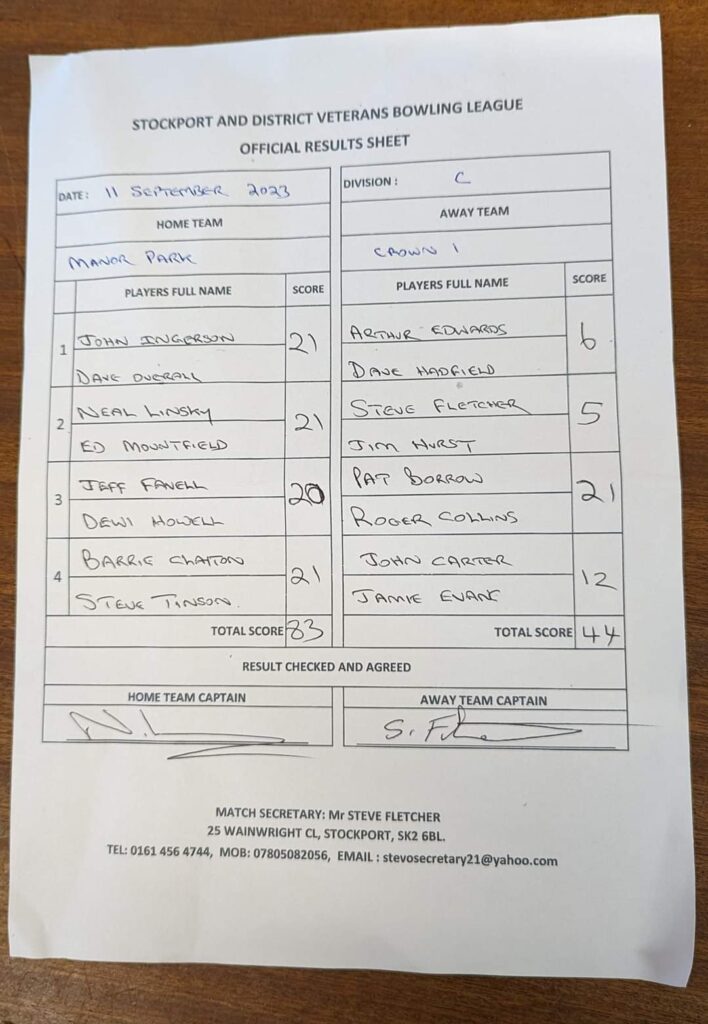 STOCKPORT AND DISTRICT VETERANS BOWLING LEAGUE
OFFICIAL RESULTS SHEET
DATE: 11 SEPTEMBER 2023
DIVISION: C
HOME TEAM
AWAY TEAM
MANOR PARK
CROWN 1
PLAYERS FULL NAME SCORE
PLAYERS FULL NAME SCORE
1 JOHN INGERSON 21
DAVE OVERALL
ARTHUR EDWARDS 6
DAVE HADFIELD
2 NEAL LINSKY 21
ED MOUNTFIELD
STEVE FLETCHER 5
JIM HURST
3 JEFF FANELL 20
DEWI HOWELL
PAT BORROW 21
ROGER COLLINS
4 BARRIE 21
STEVE TINSON.
JOHN CARTER 12
JAMIE
TOTAL SCORE 83
TOTAL SCORE 44
RESULT CHECKED AND AGREED
HOME TEAM CAPTAIN
AWAY TEAM CAPTAIN
N.L
S.
MATCH SECRETARY: Mr STEVE FLETCHER
25 WAINWRIGHT CL, STOCKPORT, SK2 6BL.
TEL: 0161 456 4744, MOB: 07805082056, EMAIL : stevosecretary21@yahoo.com